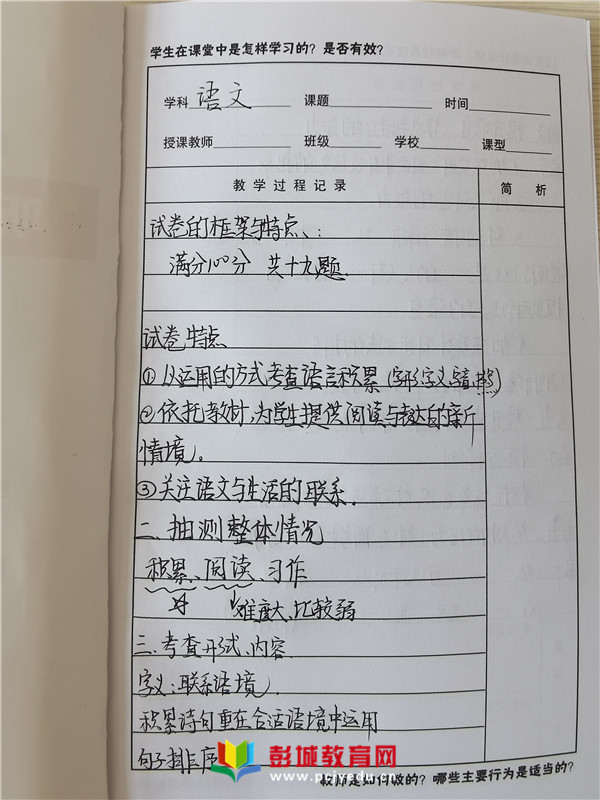 学生在课堂中是怎样学习的？是否有效？
学科 语文 课题 时间
授课教师 班级 学校 课型
教学过程记录 简析
试卷的框架与特点：
满分100分 共十九题.
试卷特点
①以运用的方式考查语言积累(字形、字义、
②依托教材,为学生提供阅读与表达的新
情境。
③关注语文与生活的联系.
二、抽测整体情况
积累、阅读、习作
难度大、比较弱
三、考查形式、内容.
字义：联系语境.
积累诗句重在合适语境中运用
句子排序
彭城教育网
www.pcjyw.com
教师是如何做的？哪些主要行为是适当的？